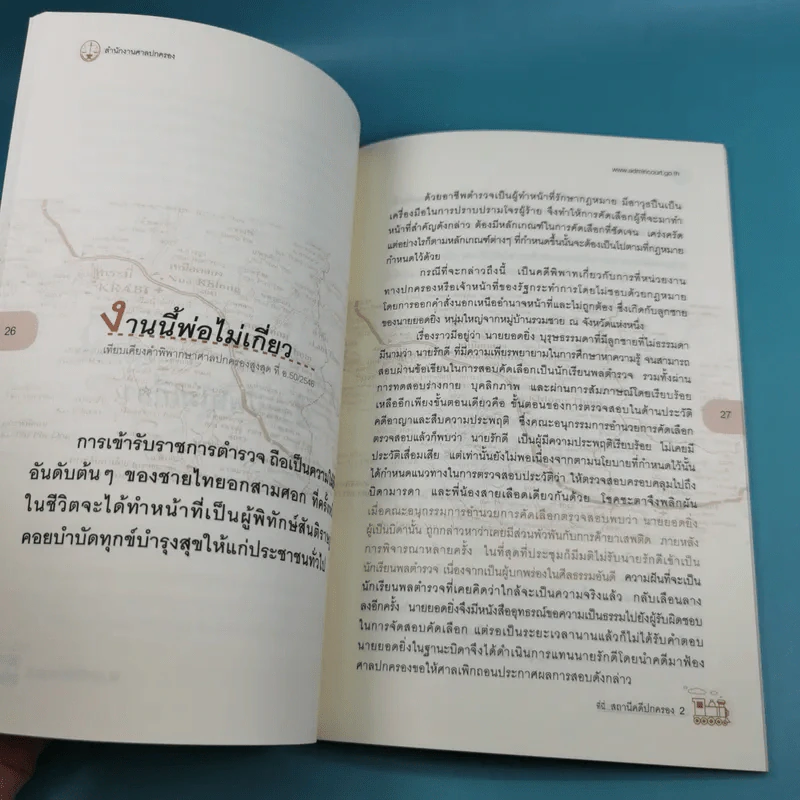 สำนักงานศาลปกครอง
26
งานนี้พ่อไม่เกี่ยว
เทียบเคียงคำพิพากษาศาลปกครองสูงสุด ที่ อ.50/2546
การเข้ารับราชการตำรวจ ถือเป็นความ
อันดับต้นๆ ของชายไทยอกสามศอก ที่ครั้ง
ในชีวิตจะได้ทำหน้าที่เป็นผู้พิทักษ์สันติราษ
คอยบำบัดทุกข์บำรุงสุขให้แก่ประชาชนทั่วไป
www.admincourt.go.th
ด้วยอาชีพตำรวจเป็นผู้ทำหน้าที่รักษากฎหมาย มีอาวุธปืนเป็น
เครื่องมือในการปราบปรามโจรผู้ร้าย จึงทำให้การคัดเลือกผู้ที่จะมาทำ
หน้าที่สำคัญดังกล่าว ต้องมีหลักเกณฑ์ในการคัดเลือกที่ชัดเจน เคร่งครัด
แต่อย่างไรก็ตามหลักเกณฑ์ต่างๆ ที่กำหนดขึ้นนั้นจะต้องเป็นไปตามที่กฎหมาย
กำหนดไว้ด้วย
กรณีที่จะกล่าวถึงนี้ เป็นคดีพิพาทเกี่ยวกับการที่หน่วยงาน
ทางปกครองหรือเจ้าหน้าที่ของรัฐกระทำการโดยไม่ชอบด้วยกฎหมาย
โดยการออกคำสั่งนอกเหนืออำนาจหน้าที่และไม่ถูกต้อง ซึ่งเกิดกับลูกชาย
ของนายยอดยิ่ง หนุ่มใหญ่จากหมู่บ้านรวมชาย ณ จังหวัดแห่งหนึ่ง
เรื่องราวมีอยู่ว่า นายยอดยิ่ง บุรุษธรรมดาที่มีลูกชายที่ไม่ธรรมดา
มีนามว่า นายรักดี ที่มีความเพียรพยายามในการศึกษาหาความรู้ จนสามารถ
สอบผ่านข้อเขียนในการสอบคัดเลือกเป็นนักเรียนพลตำรวจ รวมทั้งผ่าน
การทดสอบร่างกาย บุคลิกภาพ และผ่านการสัมภาษณ์โดยเรียบร้อย
เหลืออีกเพียงขั้นตอนเดียวคือ ขั้นตอนของการตรวจสอบในด้านประวัติ
คดีอาญาและสืบความประพฤติ ซึ่งคณะอนุกรรมการอำนวยการคัดเลือก
ตรวจสอบแล้วก็พบว่า นายรักดี เป็นผู้มีความประพฤติเรียบร้อย ไม่เคยมี
ประวัติเสื่อมเสีย แต่เท่านั้นยังไม่พอเนื่องจากตามนโยบายที่กำหนดไว้นั้น
ได้กำหนดแนวทางในการตรวจสอบประวัติว่า ให้ตรวจสอบครอบคลุมไปถึง
บิดามารดา และพี่น้องสายเลือดเดียวกันด้วย โชคชะตาจึงพลิกผัน
เมื่อคณะอนุกรรมการอำนวยการคัดเลือกตรวจสอบพบว่า นายยอดยิ่ง
ผู้เป็นบิดานั้น ถูกกล่าวหาว่าเคยมีส่วนพัวพันกับการค้ายาเสพติด ภายหลัง
การพิจารณาหลายครั้ง ในที่สุดที่ประชุมก็มีมติไม่รับนายรักดีเข้าเป็น
นักเรียนพลตำรวจ เนื่องจากเป็นผู้บกพร่องในศีลธรรมอันดี ความฝันที่จะเป็น
นักเรียนพลตำรวจที่เคยคิดว่าใกล้จะเป็นความจริงแล้ว กลับเลือนลาง
ลงอีกครั้ง นายยอดยิ่งจึงมีหนังสืออุทธรณ์ขอความเป็นธรรมไปยังผู้รับผิดชอบ
ในการจัดสอบคัดเลือก แต่รอเป็นระยะเวลานานแล้วก็ไม่ได้รับคำตอบ
นายยอดยิ่งในฐานะบิดาจึงได้ดำเนินการแทนนายรักดีโดยนำคดีมาฟ้อง
ศาลปกครองขอให้ศาลเพิกถอนประกาศผลการสอบดังกล่าว
27
ที่นี่..สถานีคดีปกครอง 2